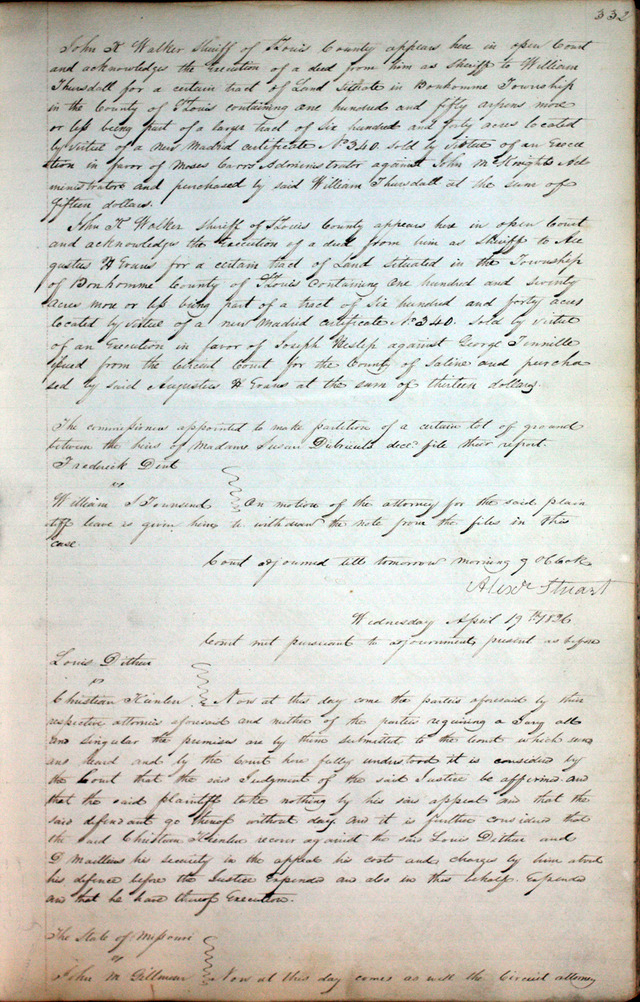 332
John K Walker Sheriff of St Louis County appears here in open Court
and acknowledges the execution of a deed from him as sheriff to William
Thursdall for a certain tract of Land situate in Bonhomme Township
in the County of St Louis containing one hundred and fifty arpens more
or less being part of a larger tract of Six hundred and forty acres located
by virtue of a new Madrid certificate No 340 sold by virtue of an Execu
tion in favor of Moses Carrs Administrator against John McKnights Ad
ministrators and purchased by said William Thursdall at the sum of
fifteen dollars.
John K Walker Sheriff of St Louis County appears here in open Court
and acknowledges the Execution of a deed from him as Sheriff to Au
gustus H Evans for a certain tract of Land situated in the Township
of Bonhomme County of St Louis containing one hundred and seventy
acres more or less being part of a tract of Six hundred and forty acres
located by virtue of a new Madrid certificate No 340. sold by virtue
of an Execution in favor of Joseph Heslep against George Tennille
issued from the Circuit Court for the County of Saline and purcha
sed by said Augustus H Evans at the sum of thirteen dollars.
The commissioners appointed to make partition of a certain lot of ground
between the heirs of Madame Susan decd file their report.
Frederick Dent
vs
William S Townsend On motion of the attorney for the said plain
tiff leave is given him to withdraw the note from the files in this
case.
Court adjourned till tomorrow morning 9 oClock
Alexr Stuart
Wednesday April 19th 1826
Court met pursuant to adjournment, present as before
Louis Dethier
vs
Christian Keinler Now at this day come the parties aforesaid by their
respective attornies aforesaid and neither of the parties requiring a Jury all
and singular the premises are by them submitted to the Court which being
and heard and by the Court here fully understood it is considered by
the Court that the said Judgment of the said Justice be affirmed and
that the said plaintiff take nothing by his said appeal and that the
said defendant go thereof without day and it is further considered that
the said Christian Keinler recover against the said Louis Dethier and
D his security in the appeal his costs and charges by him about
his defence before the Justice Expended and also in this behalf Expended
and that he have thereof Execution.
The State of Missouri
vs
John M Dillman Now at this day comes as well the Circuit attorney